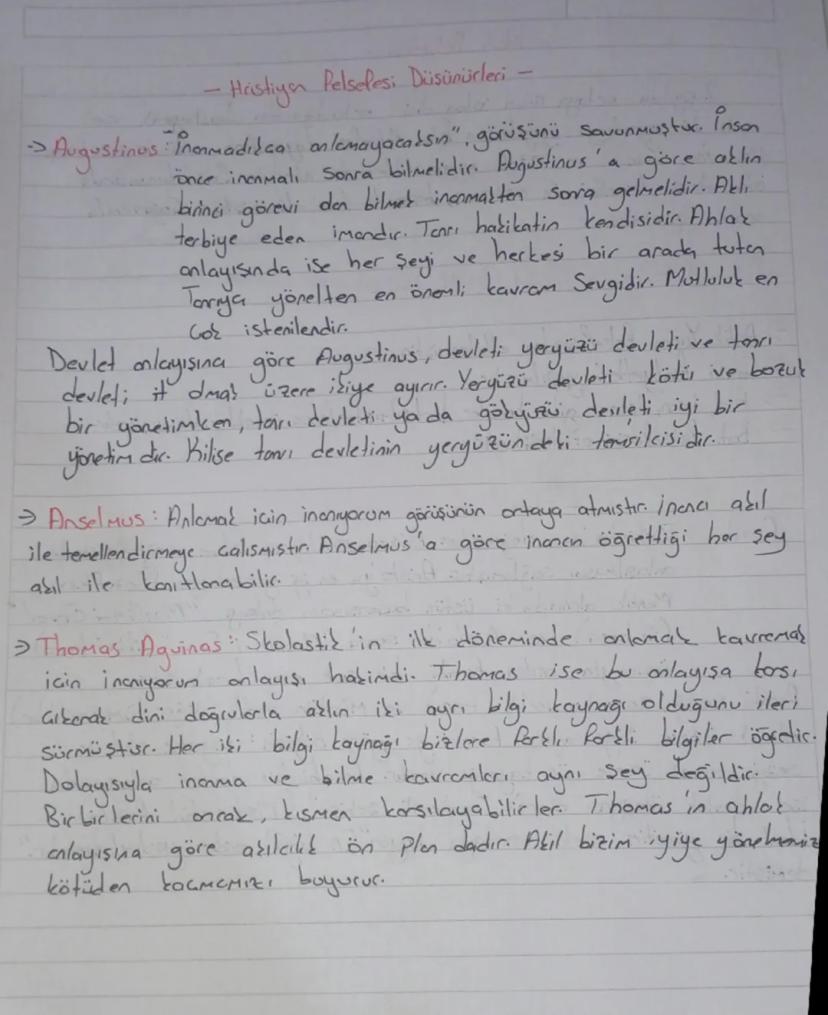 - Hristiyan Felsefesi Düşünürleri -
→ Augustinus: "İnanmadıkça anlamayacaksın", görüşünü savunmuştur. İnsan
önce inanmalı sonra bilmelidir. Augustinus'a göre aklın
birinci görevi dan bilmek inanmakten sonra gelmelidir. Aklı
terbiye eden imandır. Tanrı hakikatin kendisidir. Ahlak
anlayışında ise her şeyi ve herkesi bir arada tutan
Tanrıya yönelten en önemli kavram Sevgidir. Mutluluk en
çok istenilendir.
Devlet anlayışına göre Augustinus, devleti yeryüzü devleti ve tanrı
devleti olmak üzere ikiye ayırır. Yeryüzü devleti kötü ve bozuk
bir yönetimken, tanrı devleti ya da gökyüzü devleti iyi bir
yönetimdir. Kilise tanrı devletinin yeryüzündeki temsilcisidir.
→ Anselmus: Anlamak için inanıyorum görüşünün ortaya atmıştır. İnancı akıl
ile temellendirmeye çalışmıştır. Anselmus'a göre inancın öğrettiği her şey
akıl ile kanıtlanabilir.
→ Thomas Aquinas: Skolastik'in ilk döneminde anlamak kavramak
için inanıyorum anlayışı hakimdi. Thomas ise bu anlayışa karşı
çıkarak dini doğrularla aklın iki ayrı bilgi kaynağı olduğunu ileri
sürmüştür. Her iki bilgi kaynağı bizlere farklı farklı bilgiler öğretir.
Dolayısıyla inanma ve bilme kavramları aynı şey değildir.
Birbirlerini ancak, kısmen karşılayabilirler. Thomas'ın ahlak
anlayışına göre akılcılık ön plandadır. Akıl bizim iyiye yönelmemiz
kötüden kaçmamızı buyurur.